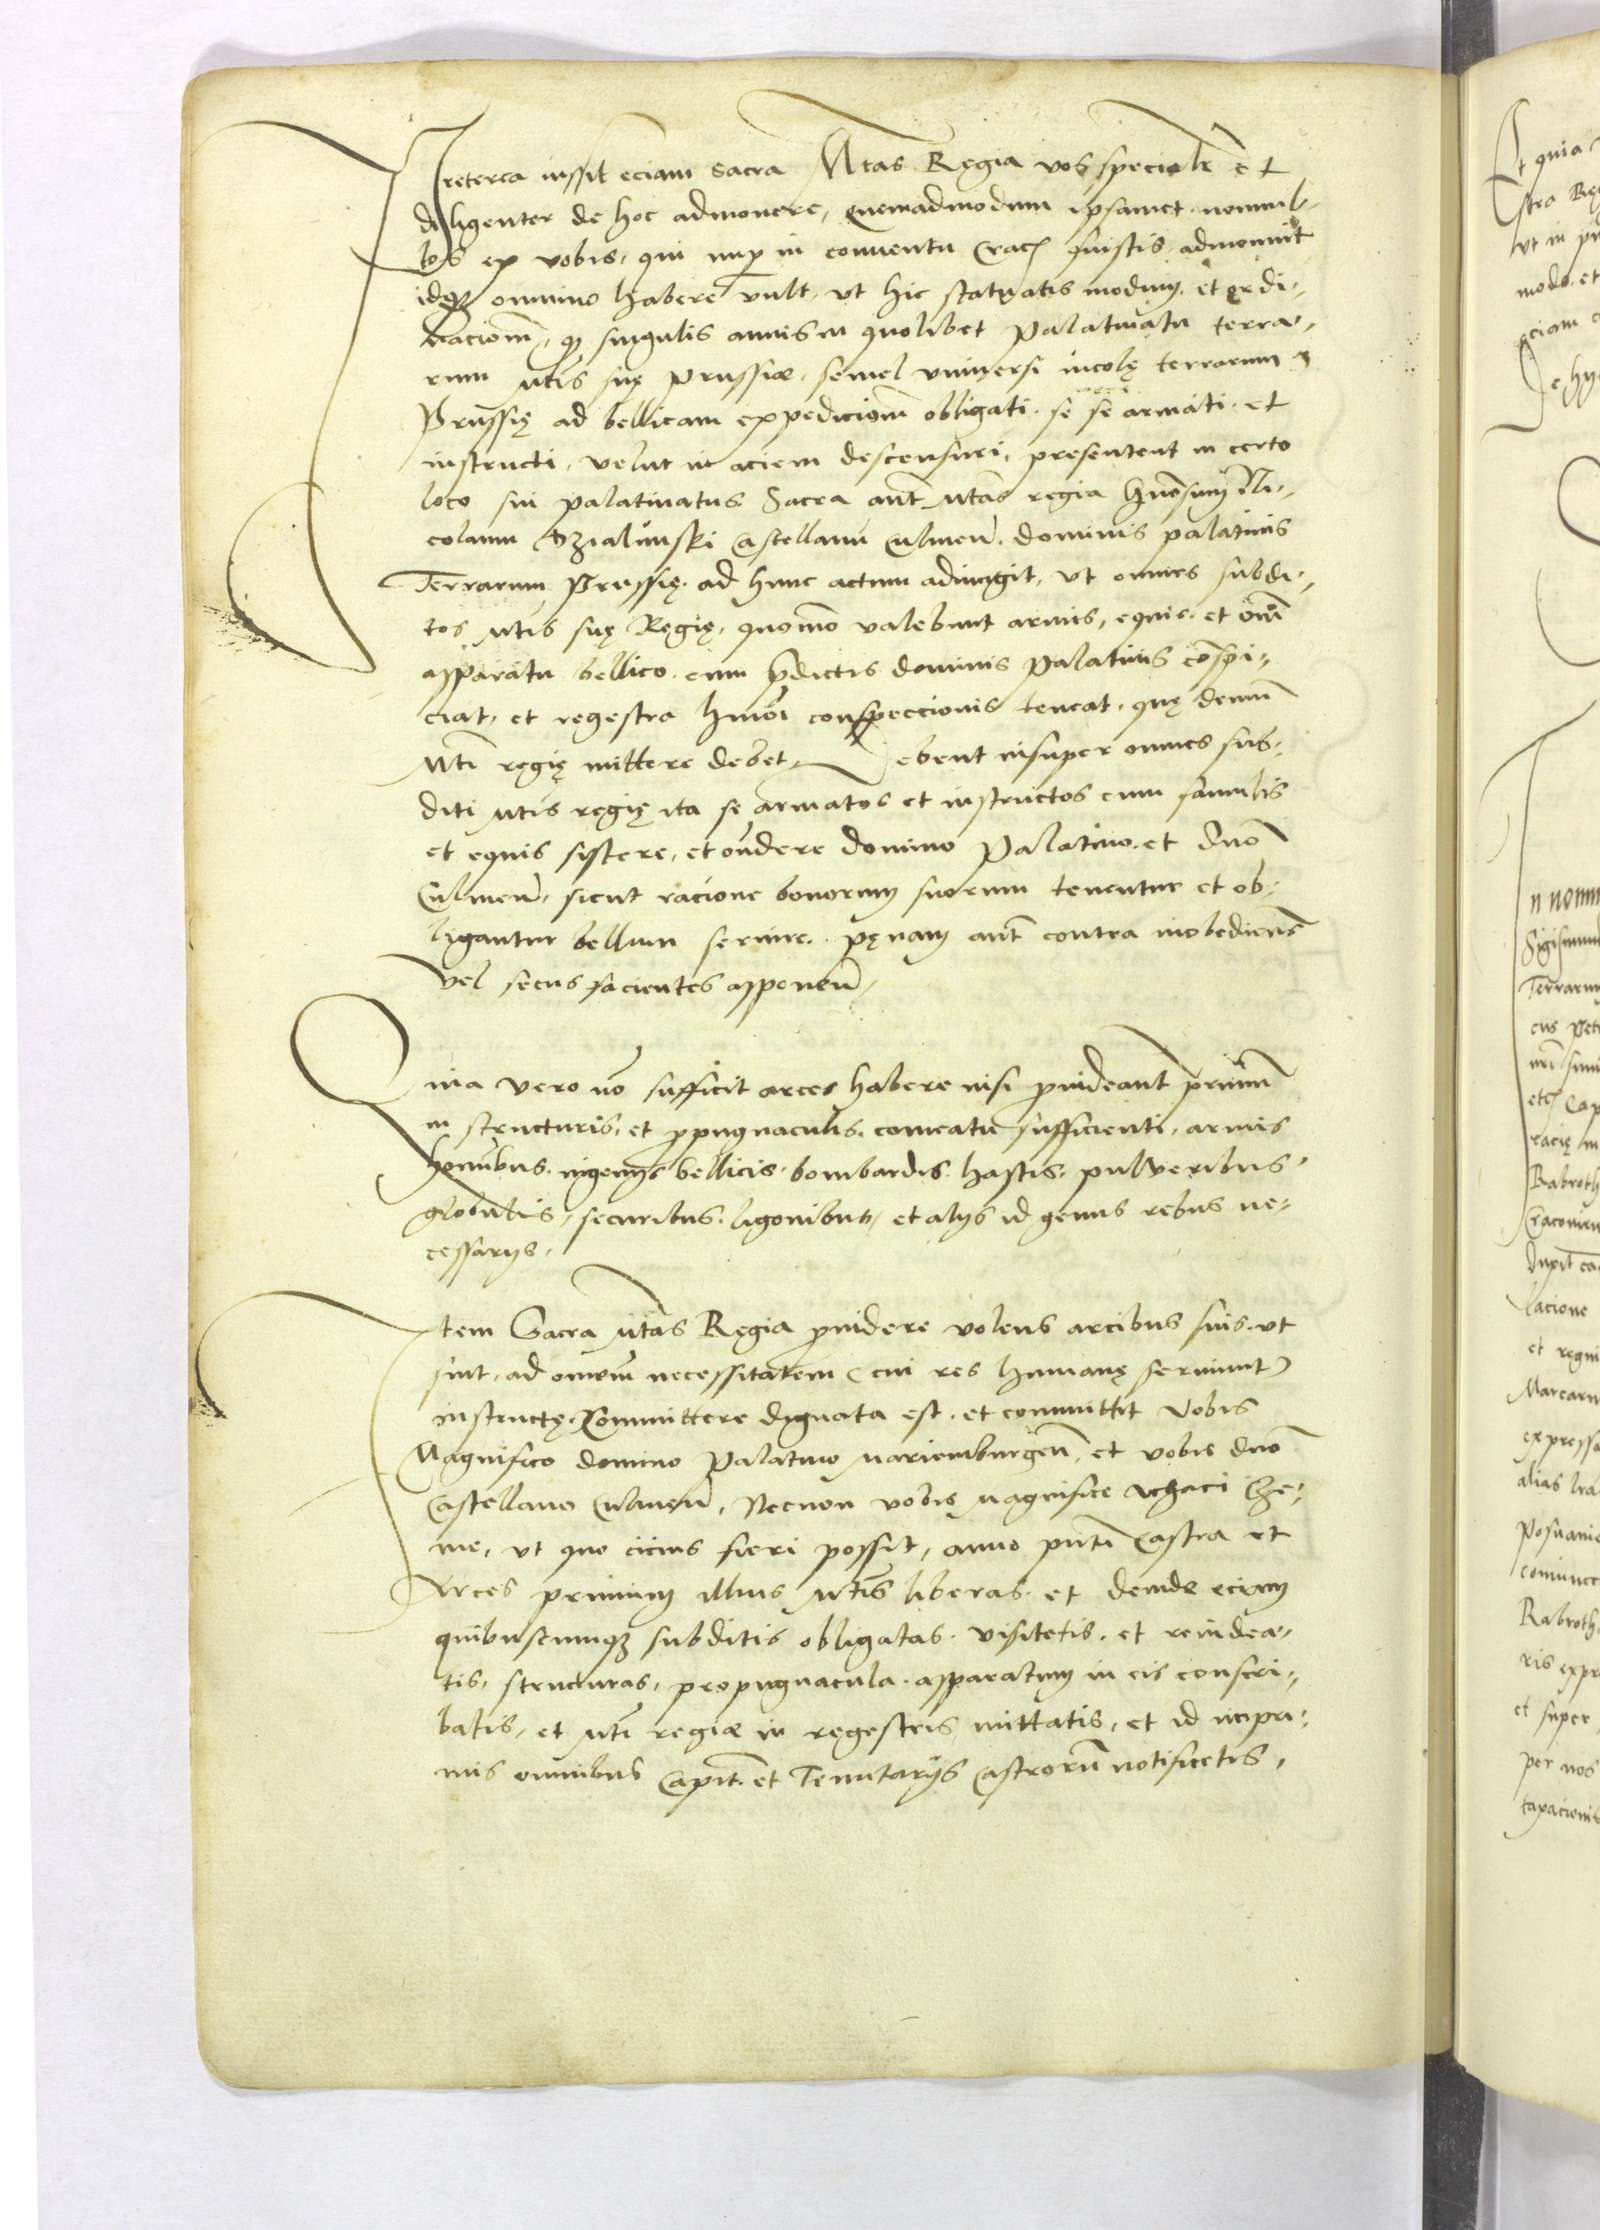 Preterea iussit eciam sacra Mtas Regia vos specialr et
diligenter de hoc admonere, quemadmodum ipsamet nonnul-
los ex vobis, qui nup in conuentu Crac fuistis admonuit
idque omnino habere vult, vt hic statuatis modum et ordi-
nacionem, q singulis annis in quolibet Palatinatu terra-
rum Mtis suę Prussiæ, semel vniuersi incolę terrarum
Prussię ad bellicam expedicionem obligati se se armati et
instructi, velut in aciem descensuri, presentent in certo
loco sui palatinatus. Sacra aut Mtas regia Gnosum Ni-
colaum Dzialinski Castellanu Culmen dominis palatinis
Terrarum Prussię ad hunc actum adiungit, vt omnes subdi-
tos Mtis suę Regię, quomo valebunt armis, equis et omi
apparatu bellico cum pdictis dominis Palatinis conspi-
ciat, et regestra hmoi conspeccionis teneat, quę demum
Mti regię mittere debet. Debent insuper omnes sub-
diti Mtis regię ita se armatos et instructos cum famulis
et equis sistere, et ondere domino Palatino et Dno
Culmen, sicut racione bonorum suorum tenentur et ob-
ligantur bellum seruire. pęnam aut contra inobedients
vel secus facientes apponen
Quia vero no sufficit arces habere nisi prouideant primum
in structuris, et propugnaculis, comeatu sufficienti, armis
hominbus, ingenijs bellicis, bombardis, hastis, pulveribus
globulis, securibus, ligonibus, et alijs id genus rebus ne-
cessarijs.
Item Sacra Mtas Regia prouidere volens arcibus suis, vt
sint, ad omnem necessitatem (cui res humanę seruiunt)
instructę. Committere dignata est, et committit Vobis
Magnifico domino Palatino Mariemburgen, et vobis dno
Castellano Culmen, Necnon vobis Magnifice Achaci Cze-
me, vt quo cicius fieri possit, anno pnti Castra et
Arces primum illius Mtis liberas, et deinde eciam
quibuscumque subditis obligatas, visitetis, et reuidea-
tis, structuras, propugnacula, apparatum in eis conscri-
batis, et Mti regiæ in regestris mittatis, et id inpri-
mis omnibus Capit et Tenutarijs Castrorum notificetis.